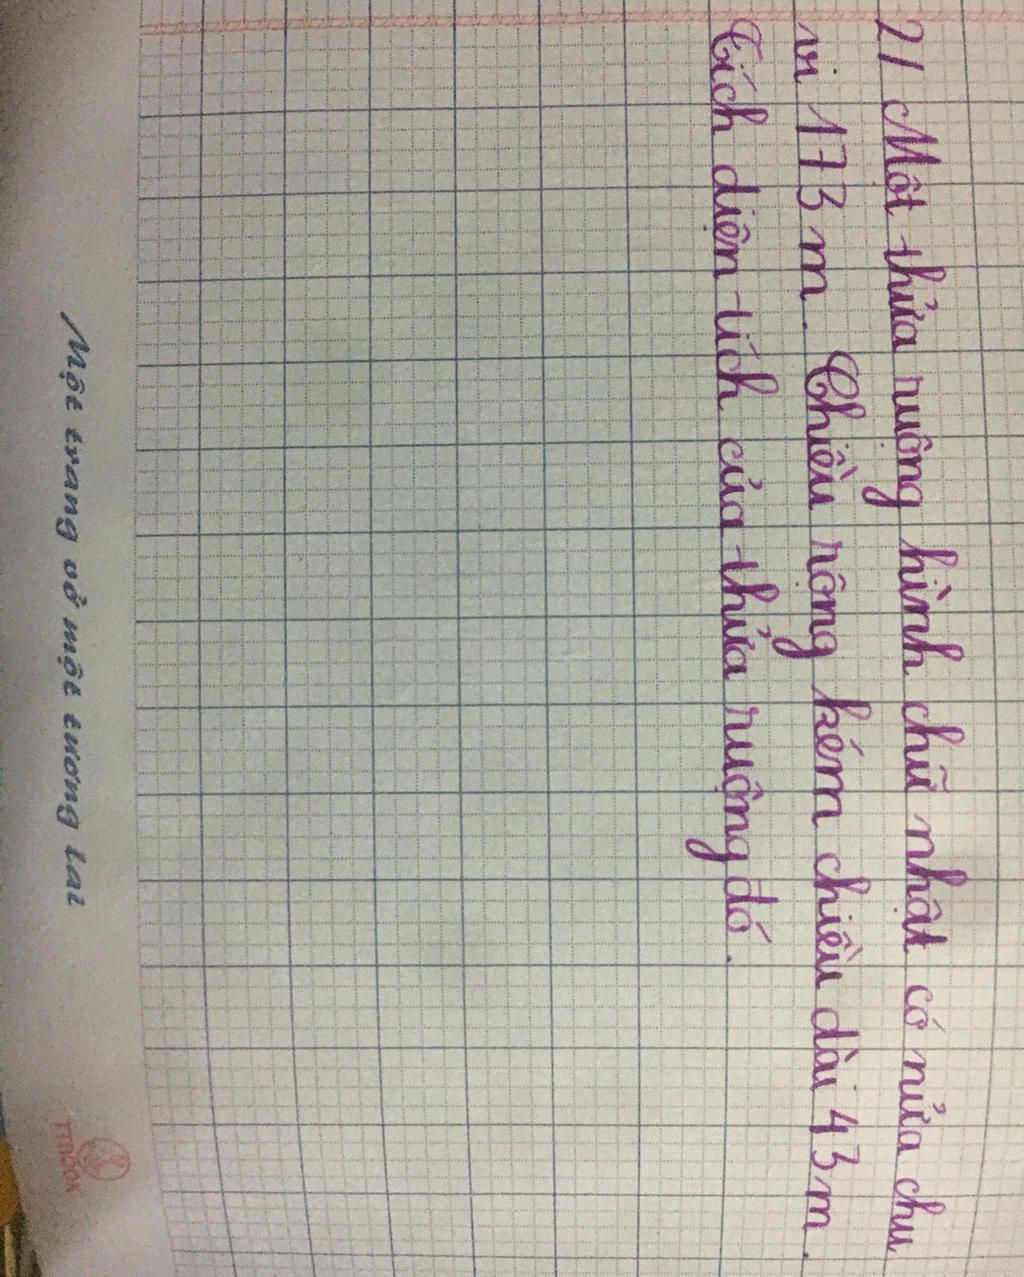 2/ Một thửa ruộng hình chữ nhật có nửa chu
vi 173 m. Chiều rộng kém chiều dài 43 m.
Tích diện tích của thửa ruộng đó.
Một trang vở một tương lai
TTBOOK